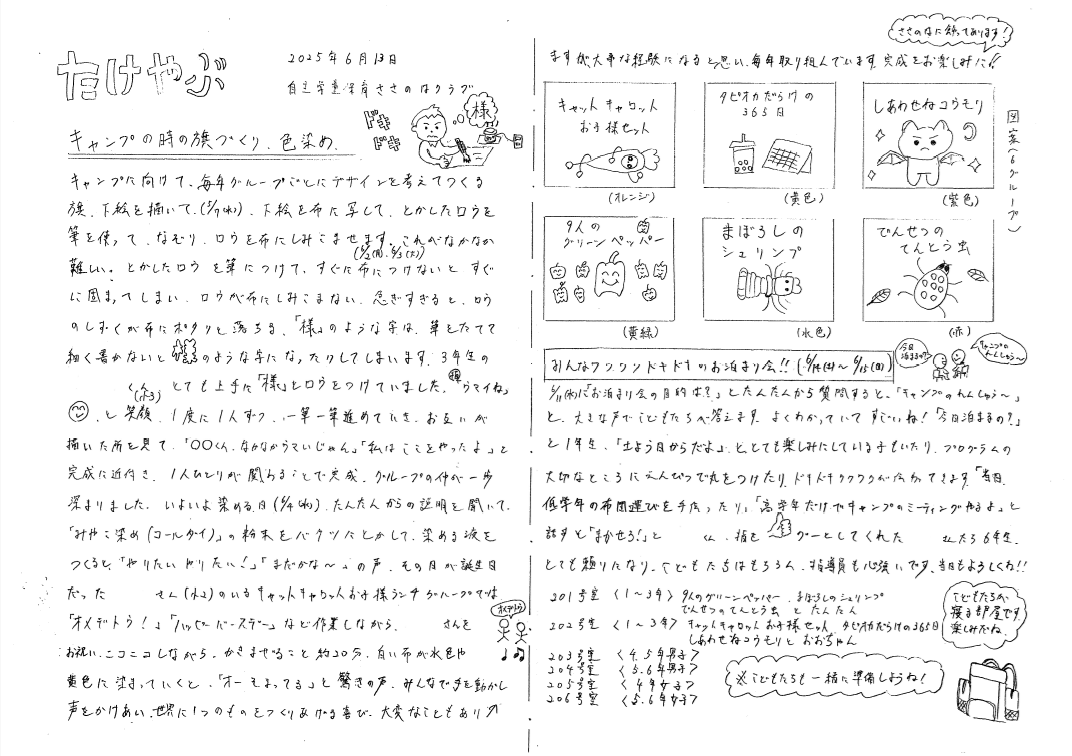 たけやぶ
2025年6月13日
自主学童保育ささのはクラブ
ドキ
ドキ
様
キャンプの時の旗づくり、色染め、
キャンプに向けて、毎年グループごとにデザインを考えてつくる
旗、下絵を描いて、(5/7(水))、下絵を布に写して、とかしたロウを
筆を使って、なぞり、ロウを布にしみこませます。これがなかなか
(6/2(月)、6/3(火))
難しい。とかしたロウを筆につけて、すぐに布につけないとすぐ
に固まってしまい、ロウが布にしみこまない、急ぎすぎると、ロウ
のしずくが布にポタリと落ちる、「様」のような字は、筆をたてて
細く書かないと のような字になったりしてしまいます。3年生の
くんが とても上手に「様」とロウをつけていました。「ウマイね」
と笑顔、1度に1人ずつ、一筆一筆進めていき、お互いが
描いた所を見て、「〇〇くん、なかなかうまいじゃん」「私はここをやったよ」と
完成に近付き、1人ひとりが関わることで完成、グループの仲が一歩
深まりました。いよいよ染める日(6/4(水))、たんたんからの説明を聞いて、
「みやこ染め(コールダイ)」の粉末をバケツにとかして、染める液を
つくると、「やりたいやりたい!」「まだかな〜」の声、その日が誕生日
だった さん(小2)のいるキャットキャロットお子様ランチグループでは
「オメデトウ!」「ハッピーバースデー」など作業しながら、 さんを
オメデトウ
お祝い、ニコニコしながら、かきまぜること約20分、白い布が水色や
黄色に染まっていくと、「オーそまってる」と驚きの声、みんなで手を動かし
声をかけあい、世界に1つのものをつくりあげる喜び、大変なこともあり
ささのはに飾ってあります!
ますが、大事な経験になると思い、毎年取り組んでいます。完成をお楽しみに!!
図案(6グループ)
キャットキャロット
お子様セット
(オレンジ)
タピオカだらけの
365日
(黄色)
しあわせなコウモリ
(紫色)
9人の
グリーンペッパー
(黄緑)
まぼろしの
シュリンプ
(水色)
でんせつの
てんとう虫
(赤)
みんなワクワクドキドキのお泊まり会!!(6/14(土)〜6/15(日))
今日泊まるの?
キャンプのれんしゅう〜
6/11(水)に「お泊まり会の目的は?」とたんたんから質問すると、「キャンプのれんしゅう〜」
と、大きな声でこどもたちが答えます。よくわかっていてすごいね!「今日泊まるの?」
と1年生、「土よう日からだよ」、ととても楽しみにしている子もいたり、プログラムの
大切なところにえんぴつで丸をつけたり、ドキドキワクワクが広がってきます。「当日、
低学年の布団運びを手伝ったり」、「高学年だけでキャンプのミーティングやるよ」と
話すと「まかせろ!」と くん、指を グーとしてくれた さんたち6年生、
とても頼りになり、こどもたちはもちろん、指導員も心強いです。当日もよろしくね!!
201号室 〈1〜3年〉 9人のグリーンペッパー、まぼろしのシュリンプ
でんせつのてんとう虫 と たんたん
202号室 〈1〜3年〉 キャットキャロットお子様セット、タピオカだらけの365日
しあわせなコウモリとおおちゃん
203号室 〈4.5年男子〉
204号室 〈5.6年男子〉
205号室 〈4年女子〉
206号室 〈5.6年女子〉
こどもたちが
寝る部屋です
楽しみだね。
※こどもたちも一緒に準備しようね!